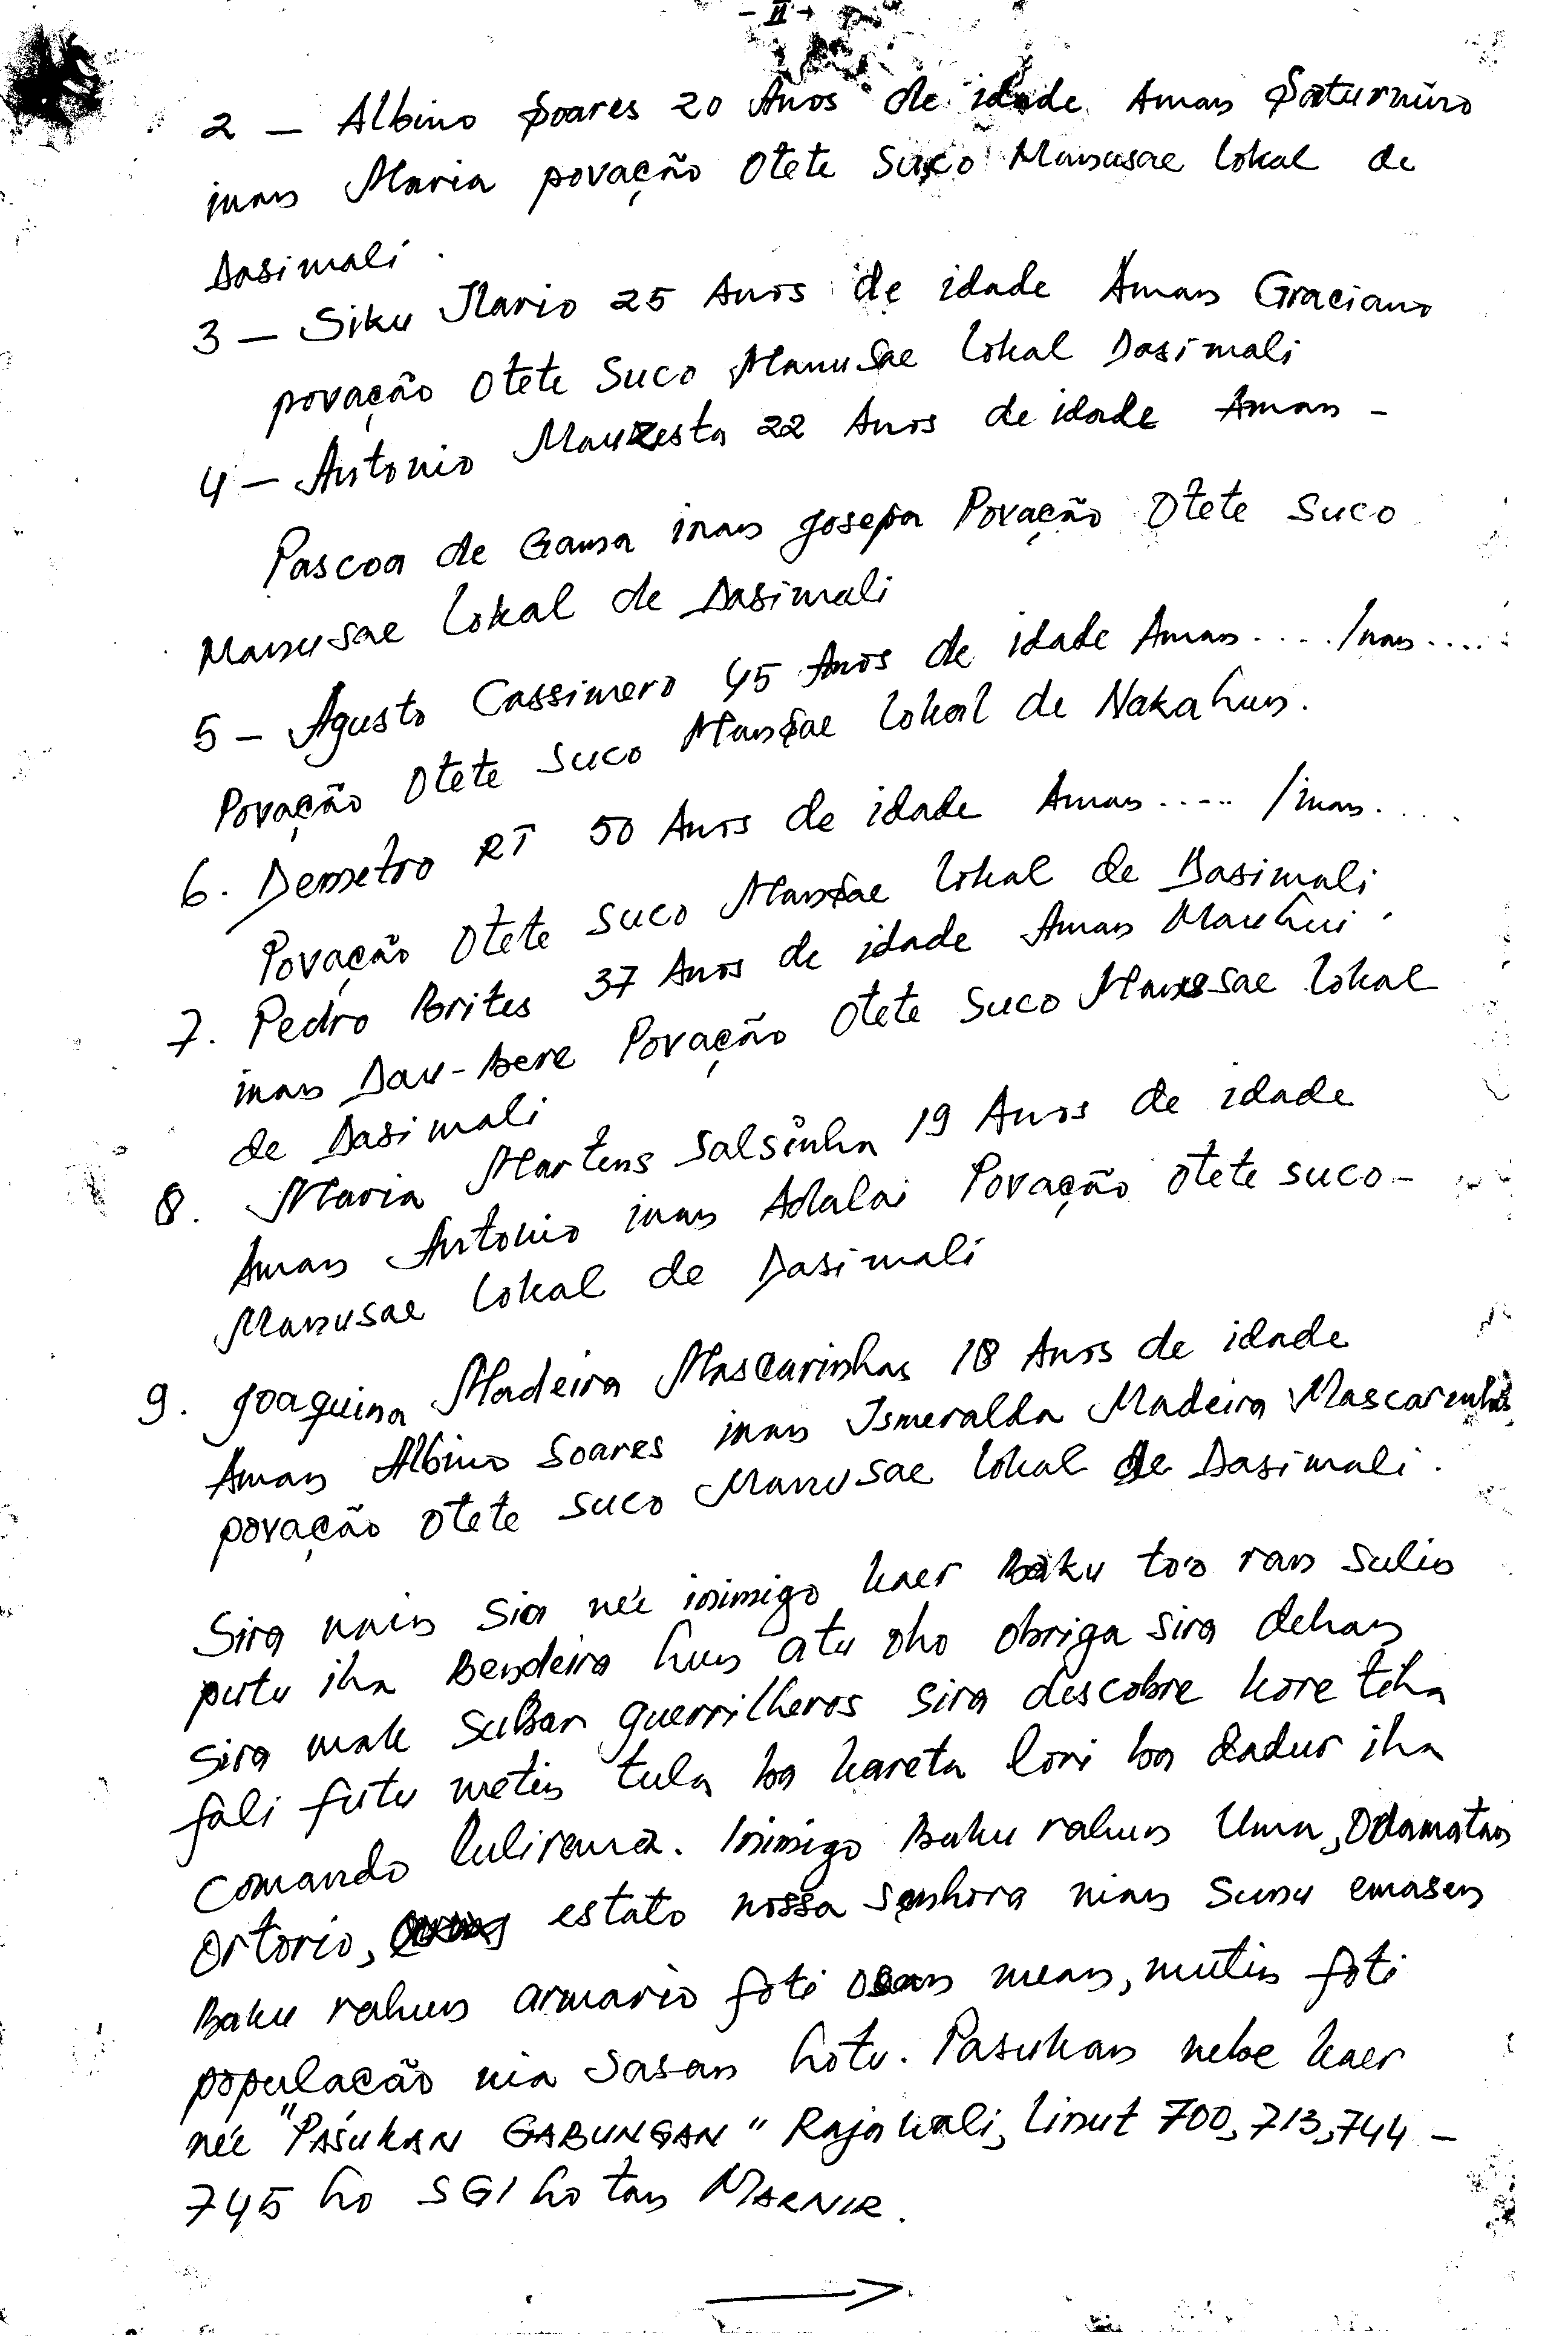 - II -
2 - Albino Soares 20 Anos de idade Aman Saturnino
inan Maria povação Otete Suco Manusae lokal de
Dasimali.
3 - Siku Ilario 25 Anos de idade Aman Graciano
povação Otete Suco Manusae lokal Dasimali
4 - Antonio Mauzesta 22 Anos de idade Aman -
Pascoa de Gama inan Josepa Povação Otete Suco
Manusae lokal de Dasimali
5 - Agusto Cassimero 45 Anos de idade Aman..../Inan....
Povação Otete Suco Manusae lokal de Nakahun.
6. Demetro RT 50 Anos de idade Aman..... /inan....
Povação Otete Suco Manusae lokal de Dasimali
7. Pedro Brites 37 Anos de idade Aman Mauhui
inan Dau-bere Povação Otete Suco Manusae lokal
de Dasimali
8. Maria Martens Salsinha 19 Anos de idade
Aman Antonio inan Adalai Povação Otete suco -
Manusae lokal de Dasimali
9. Joaquina Madeira Mascarinhas 18 Anos de idade
Aman Albino Soares inan Ismeralda Madeira Mascarenhas
povação Otete suco Manusae lokal de Dasimali.
Sira nain sia ne'e inimigo kaer baku to'o ran sulin
putu iha Bendeira hun atu oho obriga sira dehan
sira mak subar guerrilheros sira descobre kore tiha
fali futu metin tula ba kareta lori ba dadur iha
Comando Culirema. Inimigo Baku rahun Uma, Odamatan
Ortorio, estato nossa senhora nian sunu emasen
Baku rahun armario foti osan mean, mutin foti
população nia sasan hotu. Pasukan nebe kaer
ne'e "PASUKAN GABUNGAN" Rajawali, Linut 700, 713, 744 -
745 ho SGI ho tan MARNIR.